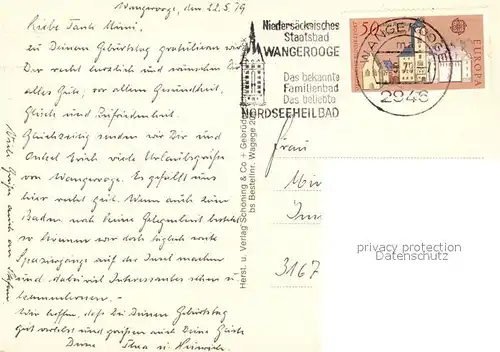 Wangerooge, den 22.5.79
Liebe Tante Mimi,
zu Deinem Geburtstag gratulieren wir
Dir recht herzlich und wünschen Dir
alles Gute, vor allem Gesundheit,
Glück und Zufriedenheit.
Gleichzeitig senden wir Dir und
Onkel Erich viele Urlaubsgrüße
von Wangerooge. Es gefällt uns
hier recht gut. Wenn auch zum
Baden noch keine Gelegenheit besteht,
so können wir doch täglich weite
Spaziergänge auf der Insel machen
und dabei viel Interessantes sehen u.
kennenlernen.
Wir hoffen, daß Du Deinen Geburtstag
gut verlebst und grüßen auch Deine Gäste
Deine
u. Heinrich
Viele Grüße auch an
Herst. u. Verlag Schöning & Co + Gebrüder
bs Bestellnr. Wagege
Niedersächsisches
Staatsbad
WANGEROOGE
Das bekannte
Familienbad
Das beliebte
NORDSEEHEILBAD
50
EUROPA
WANGEROOGE
2946
Frau
3167
property protection
www.delcampe.net